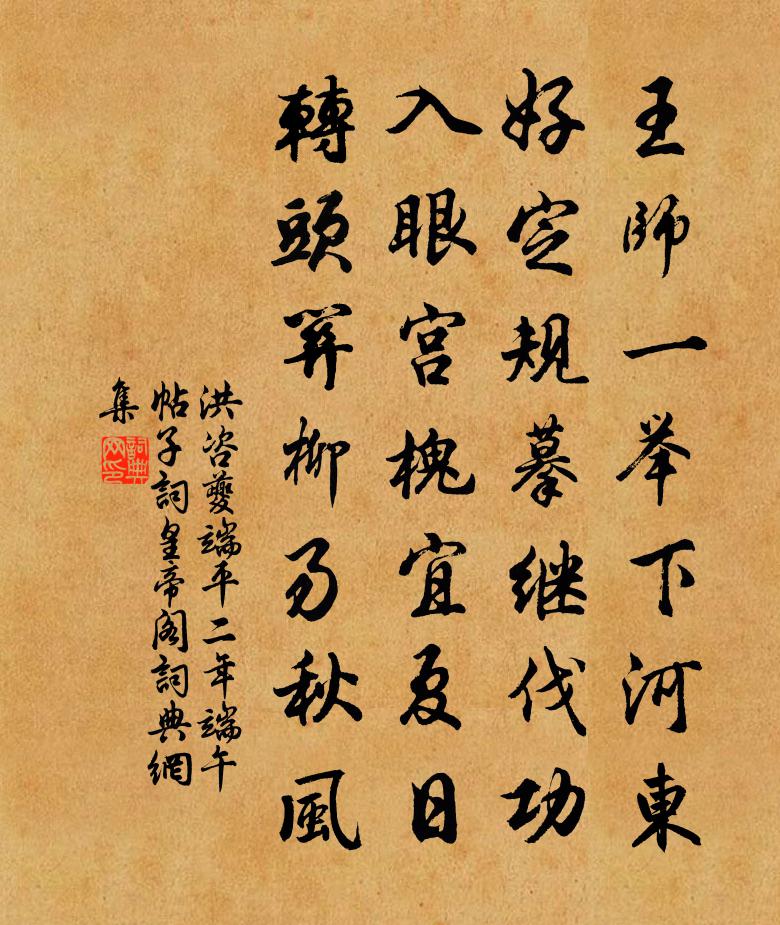 王師一举下河東
好定規摹継伐功
入眼宫槐宜夏日
轉頭柳易秋風
洪咨夔端平二年端午
帖子詞皇帝閣詞典網
集
詞典網印